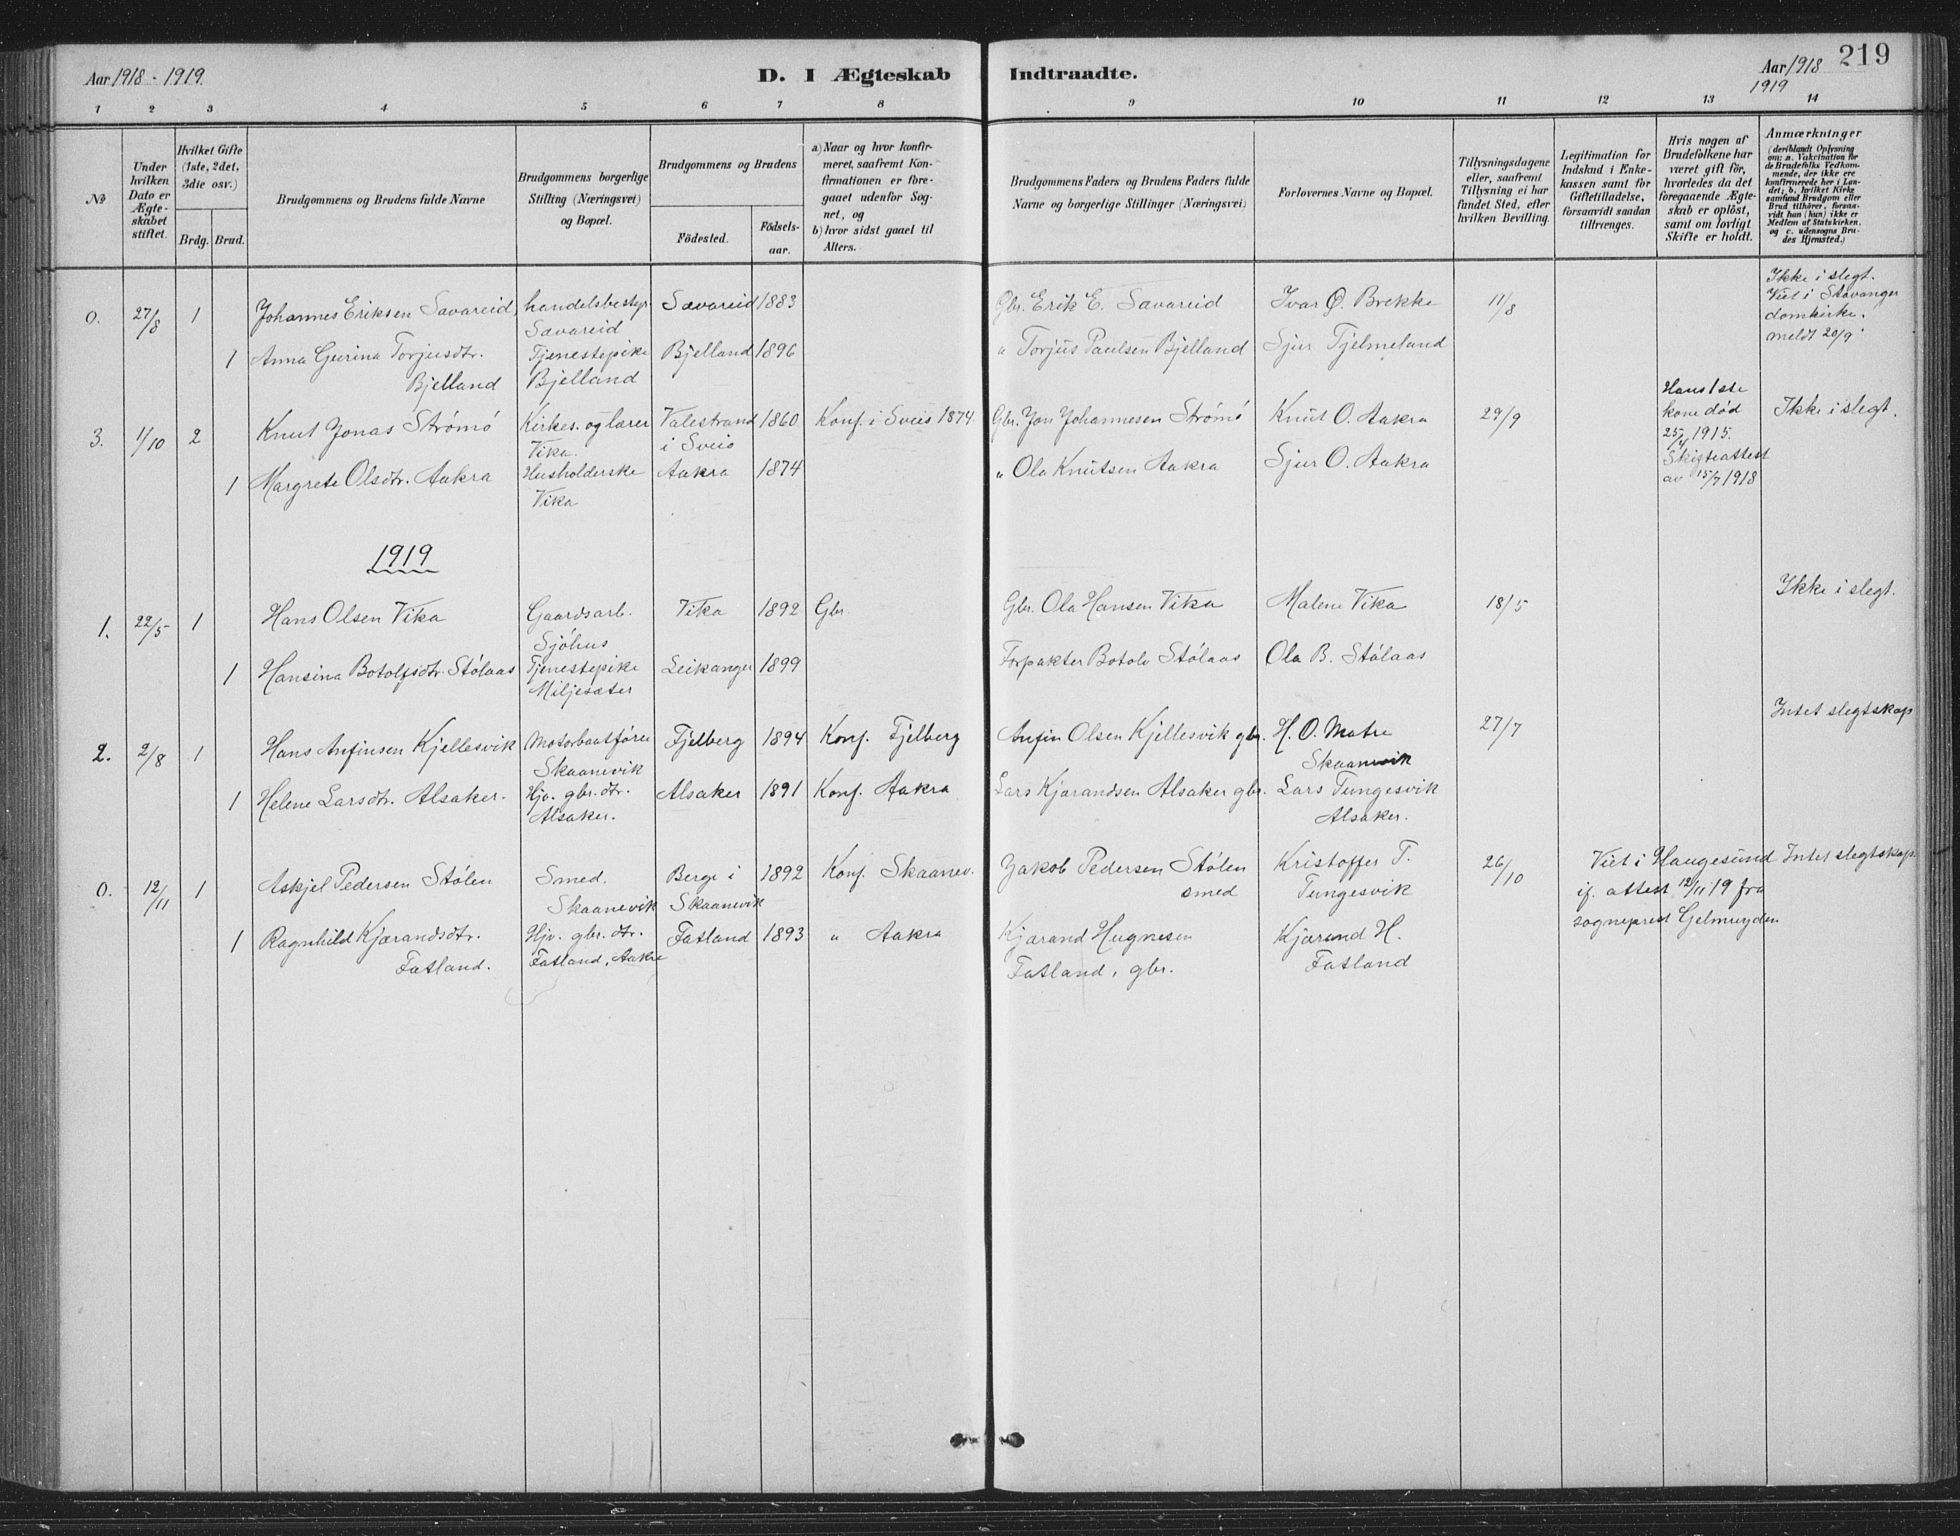 Aar 1918 - 1919.
D. I Ægteskab Indtraadte.
Aar 1918
1919
219
1 2 3 4 5 6 7 8 9 10 11 12 13 14
No
Under hvilken Dato er Ægteskabet stiftet.
Hvilket Gifte (1ste, 2det, 3die osv.)
Brdg. Brud.
Brudgommens og Brudens fulde Navne
Brudgommens borgerlige Stilling (Næringsvei) og Bopæl.
Brudgommens og Brudens
Födested. Födselsaar.
a) Naar og hvor konfirmeret, saafremt Konfirmationen er foregaaet udenfor Sognet, og
b) hvor sidst gaaet til Alters.
Brudgommens Faders og Brudens Faders fulde Navne og borgerlige Stillinger (Næringsvei)
Forlovernes Navne og Bopæl.
Tillysningsdagene eller, saafremt Tillysning ei har fundet Sted, efter hvilken Bevilling.
Legitimation for Indskud i Enkekassen samt for Giftetilladelse, forsaavidt saadan tiltrænges.
Hvis nogen af Brudefolkene har været gift för, hvorledes da det foregaaende Ægteskab er oplöst, samt om lovligt Skifte er holdt.
Anmærkninger
(deriblandt Oplysning om: a. Vakcination for de Brudefolks Vedkommende, der ikke ere konfirmerede her i Landet; b. hvilket Kirkesamfund Brudgom eller Brud tilhörer, forsaavidt han (hun) ikke er Medlem af Statskirken, og c. udensogns Brudes Hjemsted.)
0. 27/8 1 Johannes Eriksen Savareid, handelsbestyr. Savareid Savareid 1883 Gbr. Erik E. Savareid Ivar Ø. Brekke 11/8 Ikke i slegt. Viet i Stavanger domkirke. meldt 20/9
1 Anna Gurina Torjusdtr. Bjelland Tjenestepike Bjelland Bjelland 1896 " Torjus Paulsen Bjelland Sjur Tjelmeland
3. 1/10 2 Knut Jonas Strømø Kirkes. og lærer Vika. Valestrand i Sveio 1860 Konf. i Sveio 1874 Gbr. Jon Johannesen Strømø Knut O. Aakra 29/9 Hans 1ste kone død 1915. Skifteattest av 15/7 1918 Ikke i slegt.
1 Margrete Olsdtr. Aakra Husholderske Vika Aakra 1874 " Ola Knutsen Aakra Sjur O. Aakra
1919
1. 22/5 1 Hans Olsen Vika Gaardsarb. Sjøhus Vika 1892 Gbr. Gbr. Ola Hansen Vika Malene Vika 18/5 Ikke i slegt.
1 Hansina Botolfsdtr. Stølaas Tjenestepike Miljesæter Leikanger 1899 Forpakter Botolv Stølaas Ola B. Stølaas
2. 2/8 1 Hans Anfinsen Kjellesvik Motorbaatfører Skaanevik Fjelberg 1894 Konf. Fjelberg Anfin Olsen Kjellesvik gbr. H. O. Matre Skaanevik 27/7 Intet slegtskap
1 Helene Larsdtr. Alsaker. Hjv. gbr. dtr. Alsaker. Alsaker 1891 Konf. Aakra Lars Kjærandsen Alsaker gbr. Lars Tungesvik Alsaker.
0. 12/11 1 Askjel Pedersen Stølen Smed. Skaanevik Berge i Skaanevik 1892 Konf. Skaanev. Jakob Pedersen Stølen smed Kristoffer T. Tungesvik 26/10 Viet i Haugesund if. attest 12/11 19 fra sogneprest Gelmuyden Intet slegtskap
1 Ragnhild Kjærandsdtr. Fatland. Hjv. gbr. dtr. Fatland, Aakre Fatland 1893 " Aakra Kjærand Hugnesen Fatland, gbr. Kjærand H. Fatland